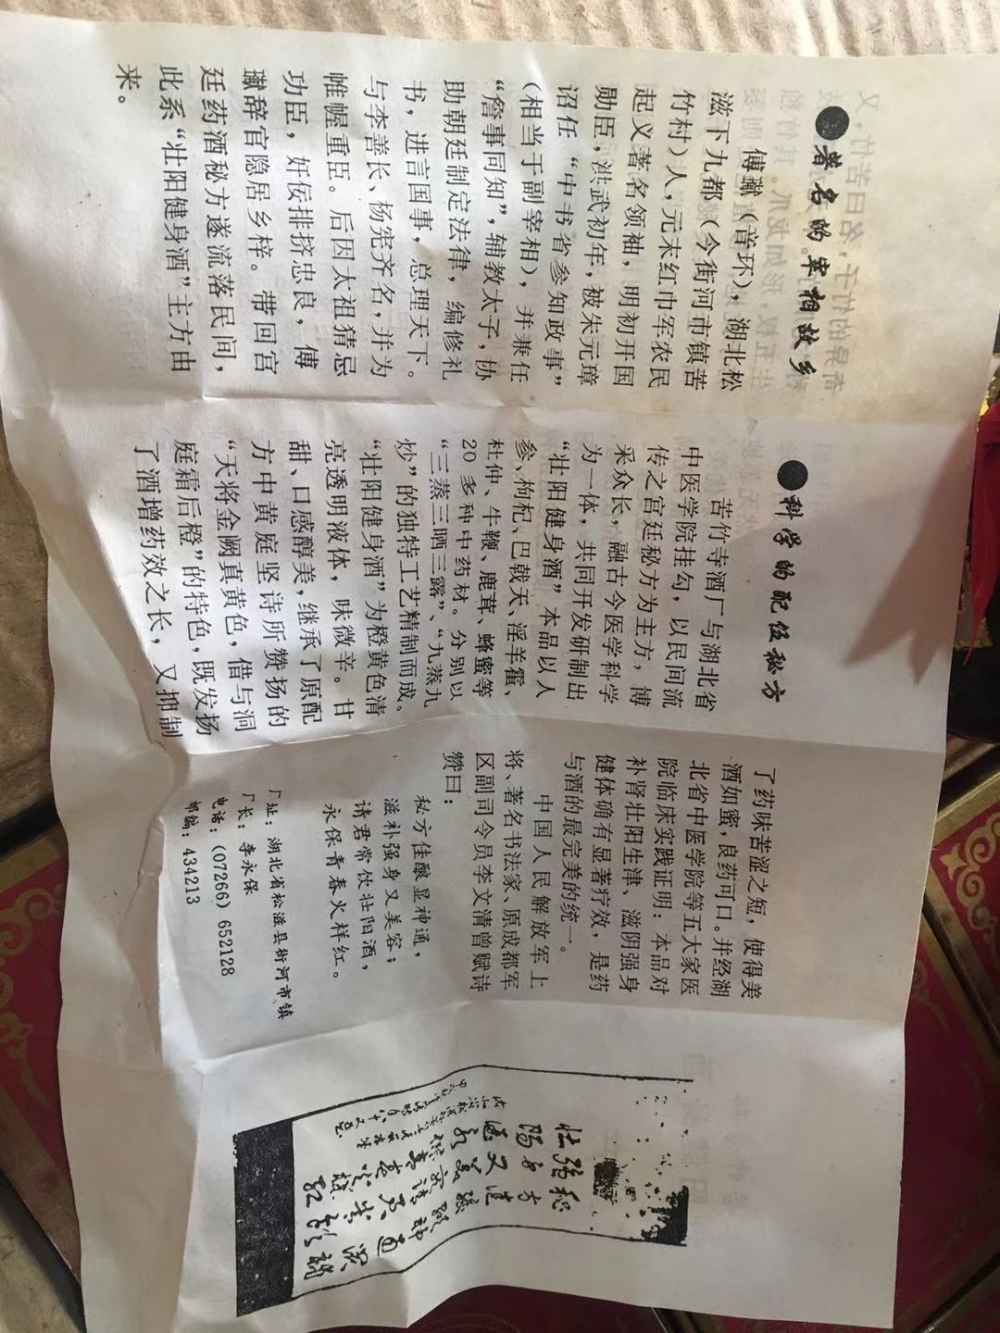 ●著名的宰相故乡
傅瓛（音环），湖北松
滋下九都（今街河市镇苦
竹村）人，元末红巾军农民
起义著名领袖，明初开国
勋臣，洪武初年，被朱元璋
诏任“中书省参知政事”
（相当于副宰相），并兼任
“詹事同知”，辅教太子，协
助朝廷制定法律，编修礼
书，进言国事，总理天下。
与李善长、杨宪齐名，并为
帷幄重臣。后因太祖猜忌
功臣，奸佞排挤忠良，傅
瓛辞官隐居乡梓。带回宫
廷药酒秘方遂流落民间，
此系“壮阳健身酒”主方由
来。
●科学的配伍秘方
苦竹寺酒厂与湖北省
中医学院挂勾，以民间流
传之宫廷秘方为主方，博
采众长，融古今医学科学
为一体，共同开发研制出
“壮阳健身酒”本品以人
参、枸杞、巴戟天、淫羊霍、
杜仲、牛鞭、鹿茸、蜂蜜等
20多种中药材。分别以
“三蒸三晒三露”、“九蒸九
炒”的独特工艺精制而成。
“壮阳健身酒”为橙黄色清
亮透明液体，味微辛。甘
甜、口感醇美，继承了原配
方中黄庭坚诗所赞扬的
“天将金阙真黄色，借与洞
庭霜后橙”的特色，既发扬
了酒增药效之长，又抑制
了药味苦涩之短，使得美
酒如蜜，良药可口。并经湖
北省中医学院等五大家医
院临床实践证明：本品对
补肾壮阳生津、滋阴强身
健体确有显著疗效，是药
与酒的最完美的统一。
中国人民解放军上
将、著名书法家、原成都军
区副司令员李文清曾赋诗
赞曰：
秘方佳酿显神通，
滋补强身又美容；
请君常饮壮阳酒，
永保青春火样红。
厂址：湖北省松滋县街河市镇
厂长：李永保
电话：(07266) 652128
邮编：434213